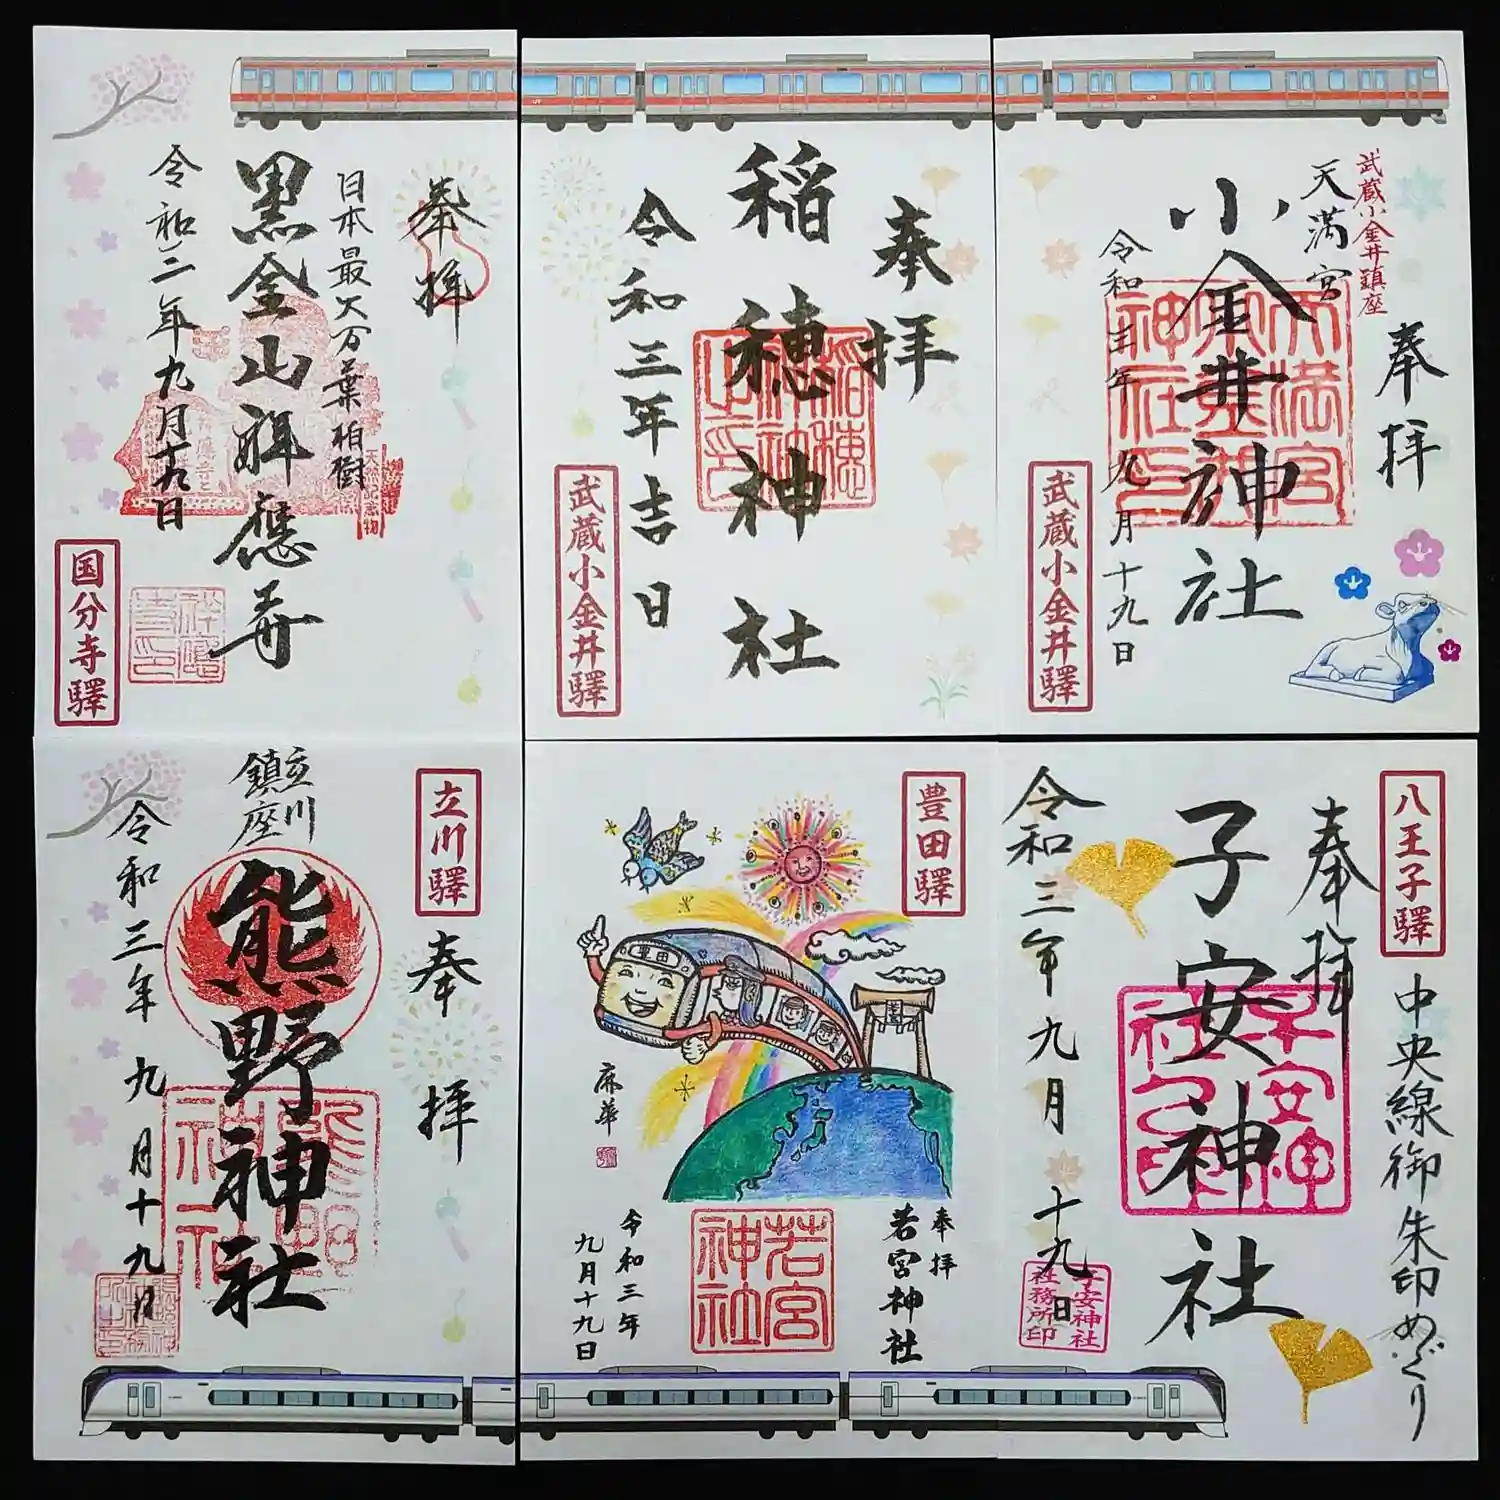 奉拝
日本最大万葉柏樹
黒金山祥應寺
令和三年九月十九日
天然記念物
国分寺驛
奉拝
稲穂神社
令和三年吉日
武蔵小金井驛
武蔵小金井鎮座
天満宮
奉拝
小金井神社
令和三年九月十九日
天満宮
神社
武蔵小金井驛
立川驛
奉拝
立川
鎮座
熊野神社
令和三年九月十九日
豊田驛
豊田
麻華
奉拝
若宮神社
若宮
神社
令和三年
九月十九日
八王子驛
中央線御朱印めぐり
奉拝
子安神社
子安神
令和三年九月十九日
子安神社
社務所印